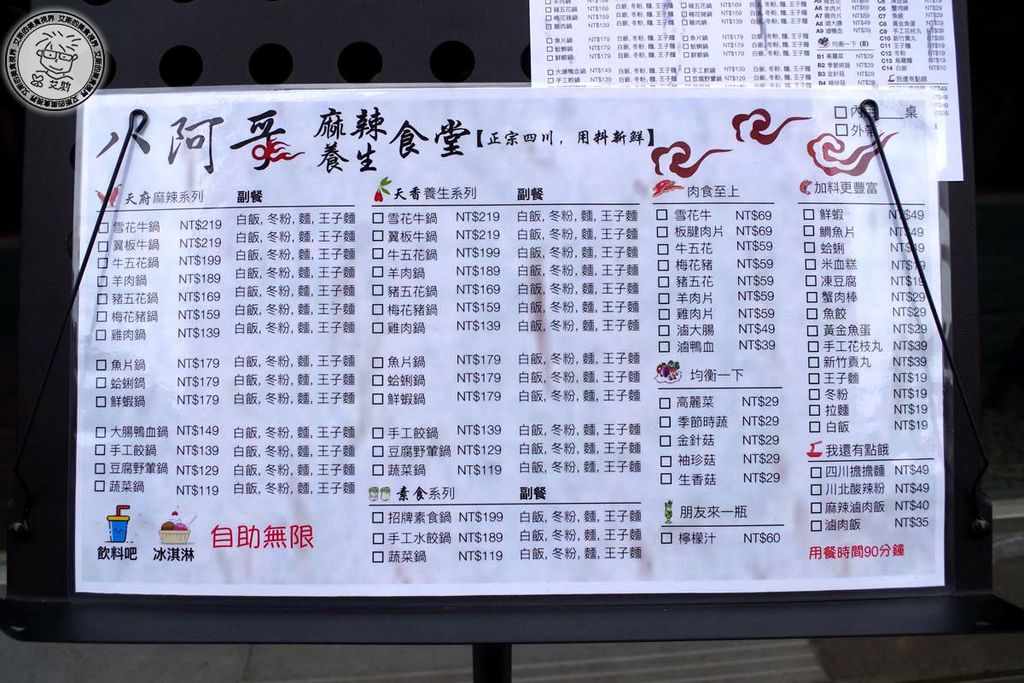 艾斯的美食視界
艾斯
八阿哥 麻辣養生食堂【正宗四川,用料新鮮】
桌
天府麻辣系列 副餐
雪花牛鍋 NT$219 白飯, 冬粉, 麵, 王子麵
翼板牛鍋 NT$219 白飯, 冬粉, 麵, 王子麵
牛五花鍋 NT$199 白飯, 冬粉, 麵, 王子麵
羊肉鍋 NT$189 白飯, 冬粉, 麵, 王子麵
豬五花鍋 NT$169 白飯, 冬粉, 麵, 王子麵
梅花豬鍋 NT$159 白飯, 冬粉, 麵, 王子麵
雞肉鍋 NT$139 白飯, 冬粉, 麵, 王子麵
魚片鍋 NT$179 白飯, 冬粉, 麵, 王子麵
蛤蜊鍋 NT$179 白飯, 冬粉, 麵, 王子麵
鮮蝦鍋 NT$179 白飯, 冬粉, 麵, 王子麵
大腸鴨血鍋 NT$149 白飯, 冬粉, 麵, 王子麵
手工餃鍋 NT$139 白飯, 冬粉, 麵, 王子麵
豆腐野蕈鍋 NT$129 白飯, 冬粉, 麵, 王子麵
蔬菜鍋 NT$119 白飯, 冬粉, 麵, 王子麵
飲料吧 冰淇淋 自助無限
天香養生系列 副餐
雪花牛鍋 NT$219 白飯, 冬粉, 麵, 王子麵
翼板牛鍋 NT$219 白飯, 冬粉, 麵, 王子麵
牛五花鍋 NT$199 白飯, 冬粉, 麵, 王子麵
羊肉鍋 NT$189 白飯, 冬粉, 麵, 王子麵
豬五花鍋 NT$169 白飯, 冬粉, 麵, 王子麵
梅花豬鍋 NT$159 白飯, 冬粉, 麵, 王子麵
雞肉鍋 NT$139 白飯, 冬粉, 麵, 王子麵
魚片鍋 NT$179 白飯, 冬粉, 麵, 王子麵
蛤蜊鍋 NT$179 白飯, 冬粉, 麵, 王子麵
鮮蝦鍋 NT$179 白飯, 冬粉, 麵, 王子麵
手工餃鍋 NT$139 白飯, 冬粉, 麵, 王子麵
豆腐野蕈鍋 NT$129 白飯, 冬粉, 麵, 王子麵
蔬菜鍋 NT$119 白飯, 冬粉, 麵, 王子麵
素食系列 副餐
招牌素食鍋 NT$199 白飯, 冬粉, 麵, 王子麵
手工水餃鍋 NT$189 白飯, 冬粉, 麵, 王子麵
蔬菜鍋 NT$119 白飯, 冬粉, 麵, 王子麵
肉食至上
雪花牛 NT$69
板腱肉片 NT$69
牛五花 NT$59
梅花豬 NT$59
豬五花 NT$59
羊肉片 NT$59
雞肉片 NT$59
滷大腸 NT$49
滷鴨血 NT$39
均衡一下
高麗菜 NT$29
季節時蔬 NT$29
金針菇 NT$29
袖珍菇 NT$29
生香菇 NT$29
朋友來一瓶
檸檬汁 NT$60
加料更豐富
鮮蝦 NT$49
鯛魚片 NT$49
蛤蜊
米血糕
凍豆腐
蟹肉棒 NT$29
魚餃 NT$29
黃金魚蛋 NT$39
手工花枝丸 NT$39
新竹貢丸 NT$39
王子麵 NT$19
冬粉 NT$19
拉麵 NT$19
白飯 NT$19
我還有點餓
四川擔擔麵 NT$49
川北酸辣粉 NT$49
麻辣滷肉飯 NT$40
滷肉飯 NT$35
用餐時間90分鐘